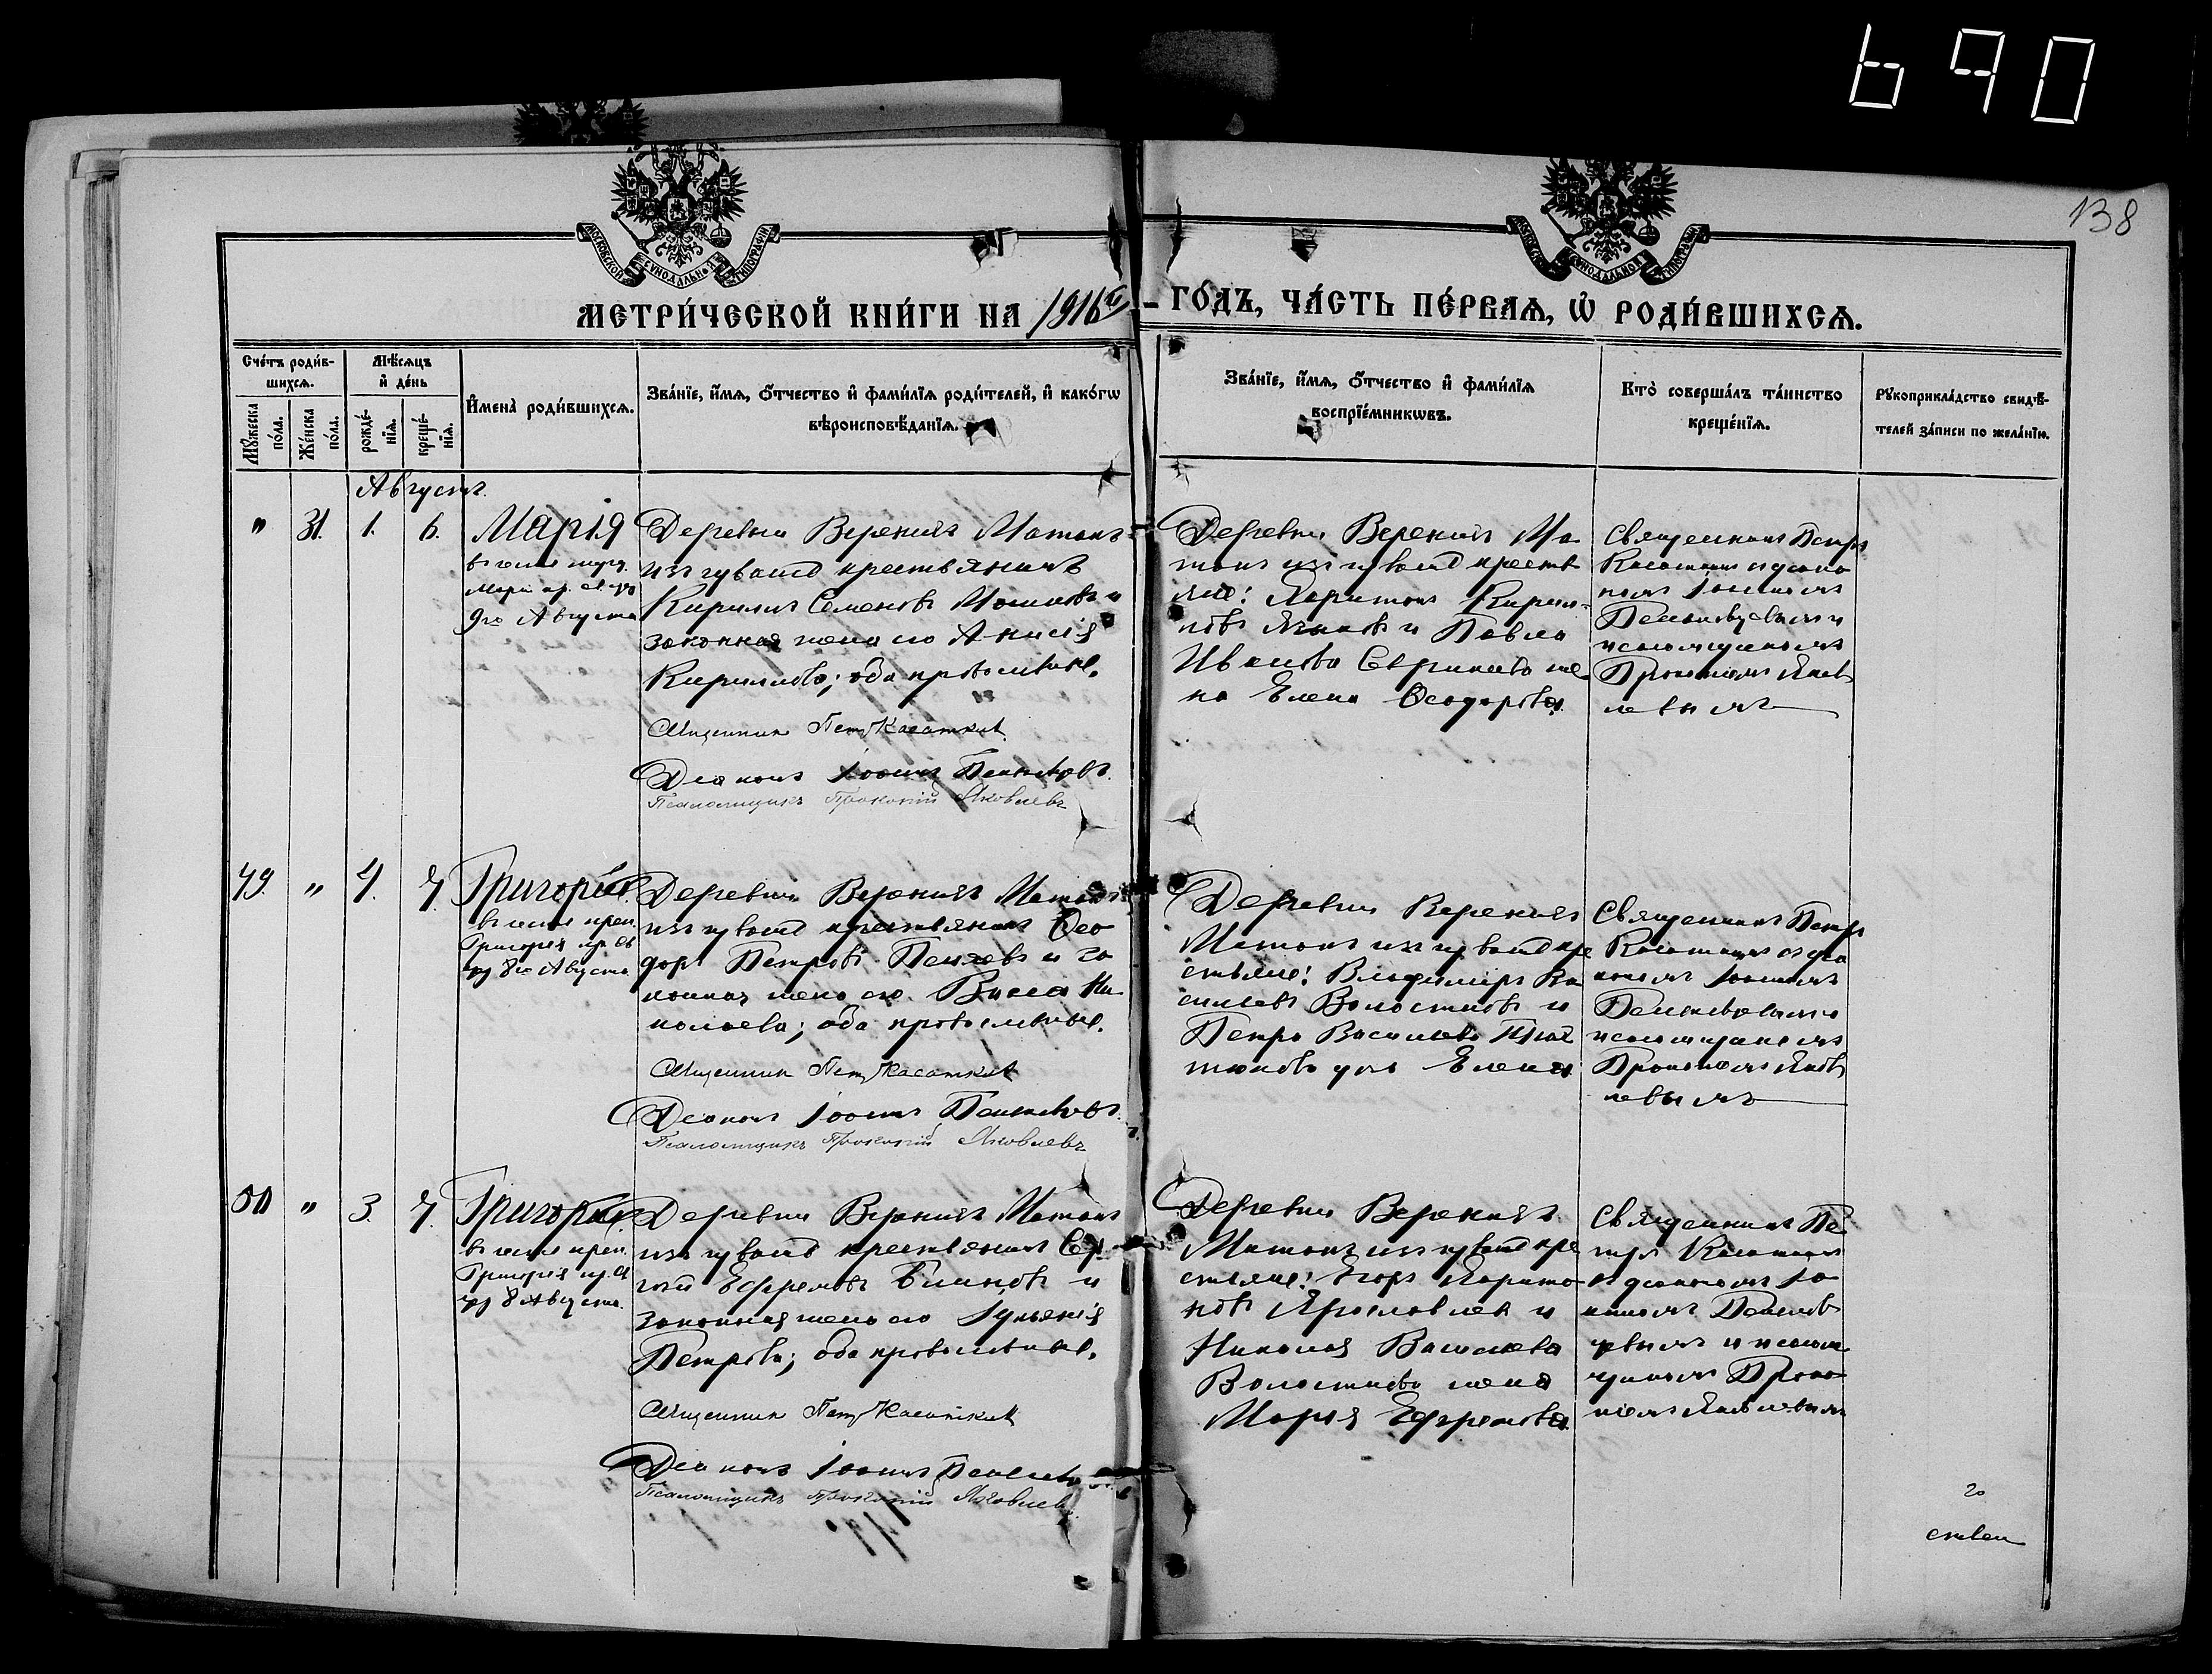 690
138
МОСКОВСКОЙ СѴНОДАЛЬНОЙ ТИПОГРАФІИ
МОСКОВСКОЙ СѴНОДАЛЬНОЙ ТИПОГРАФІИ
МЕТРИ́ЧЕСКОЙ КНИ́ГИ НА 1916й – ГО́ДЪ, ЧА́СТЬ ПЕ́РВАѦ, Ѡ҆ РОДИ́ВШИХСѦ.
Сче́тъ роди́в-
шихсѧ.
Мꙋ́жеска
по́ла.
Же́нска
по́ла.
Мѣ́сѧцъ
и҆ де́нь
рожде́-
нїѧ.
креще́-
нїѧ.
И҆мена̀ роди́вшихсѧ.
Зва́нїе, и҆́мѧ, ѻ҆́тчество и҆ фами́лїѧ роди́телей, и҆ како́гѡ
вѣроисповѣ́данїѧ.
Зва́нїе, и҆́мѧ, ѻ҆́тчество и҆ фами́лїѧ
воспрїе́мникѡвъ.
Кто̀ соверша́лъ та́инство
креще́нїѧ.
Рꙋкоприкла́дство свидѣ́-
телей за́писи по жела́нїю.
Августъ.
" 31. 1. 6. Марія
9го Августа
Деревни Верхнихъ Матакъ
изъ чувашъ крестьянинъ
Кириллъ Семеновъ и
законная жена его Анисія
Кириллова; оба православные.
Священник Петр Касаткин
Діаконъ Іоаннъ
Псаломщикъ Прокопій Яковлевъ
Деревни Верхнихъ Ма
такъ изъ чувашъ крестья
не: Харитонъ Кирил-
ловъ и Павла
Иванова же
на Елена Ѳеодорова.
Священникъ Петръ
Касаткинъ съ діако
номъ Іоанномъ
и
псаломщикомъ
Прокопіемъ Яков
левымъ
49. " 4. 7. Григорій
въ честь преп.
Григорія
8го Августа
Деревни Верхнихъ Матакъ
изъ чувашъ крестьянинъ Ѳео
доръ Петровъ и за
конная жена его Васса Ни
колаева; оба православные.
Священник Петр Касаткин
Діаконъ Іоаннъ
Псаломщикъ Прокопій Яковлевъ
Деревни Верхнихъ
Матакъ изъ чувашъ кре
стьяне: Владиміръ Ва
сильевъ Волостновъ и
Петра Васильева
дочь Елена
Священникъ Петръ
Касаткинъ съ діа
кономъ Іоанномъ
и
псаломщикомъ
Прокопіемъ Яков
левымъ
50 " 3. 7. Григорій
въ честь преп.
Григорія
8 Августа.
Деревни Верхнихъ Матакъ
изъ чувашъ крестьянинъ Сер
гій Ефремовъ Блиновъ и
законная жена его Іуліанія
Петрова; оба православные.
Священник Петр Касаткин
Діаконъ Іоаннъ
Псаломщикъ Прокопій Яковлевъ
Деревни Верхнихъ
Матакъ изъ чувашъ кре
стьяне: Егоръ Харито
новъ и
Николая Васильева
Волостнова жена
Марія Ефремова.
Священникъ Пе
тръ Касаткинъ
съ діакономъ Іо
анномъ
и псалом
щикомъ Проко
піемъ Яковлевымъ